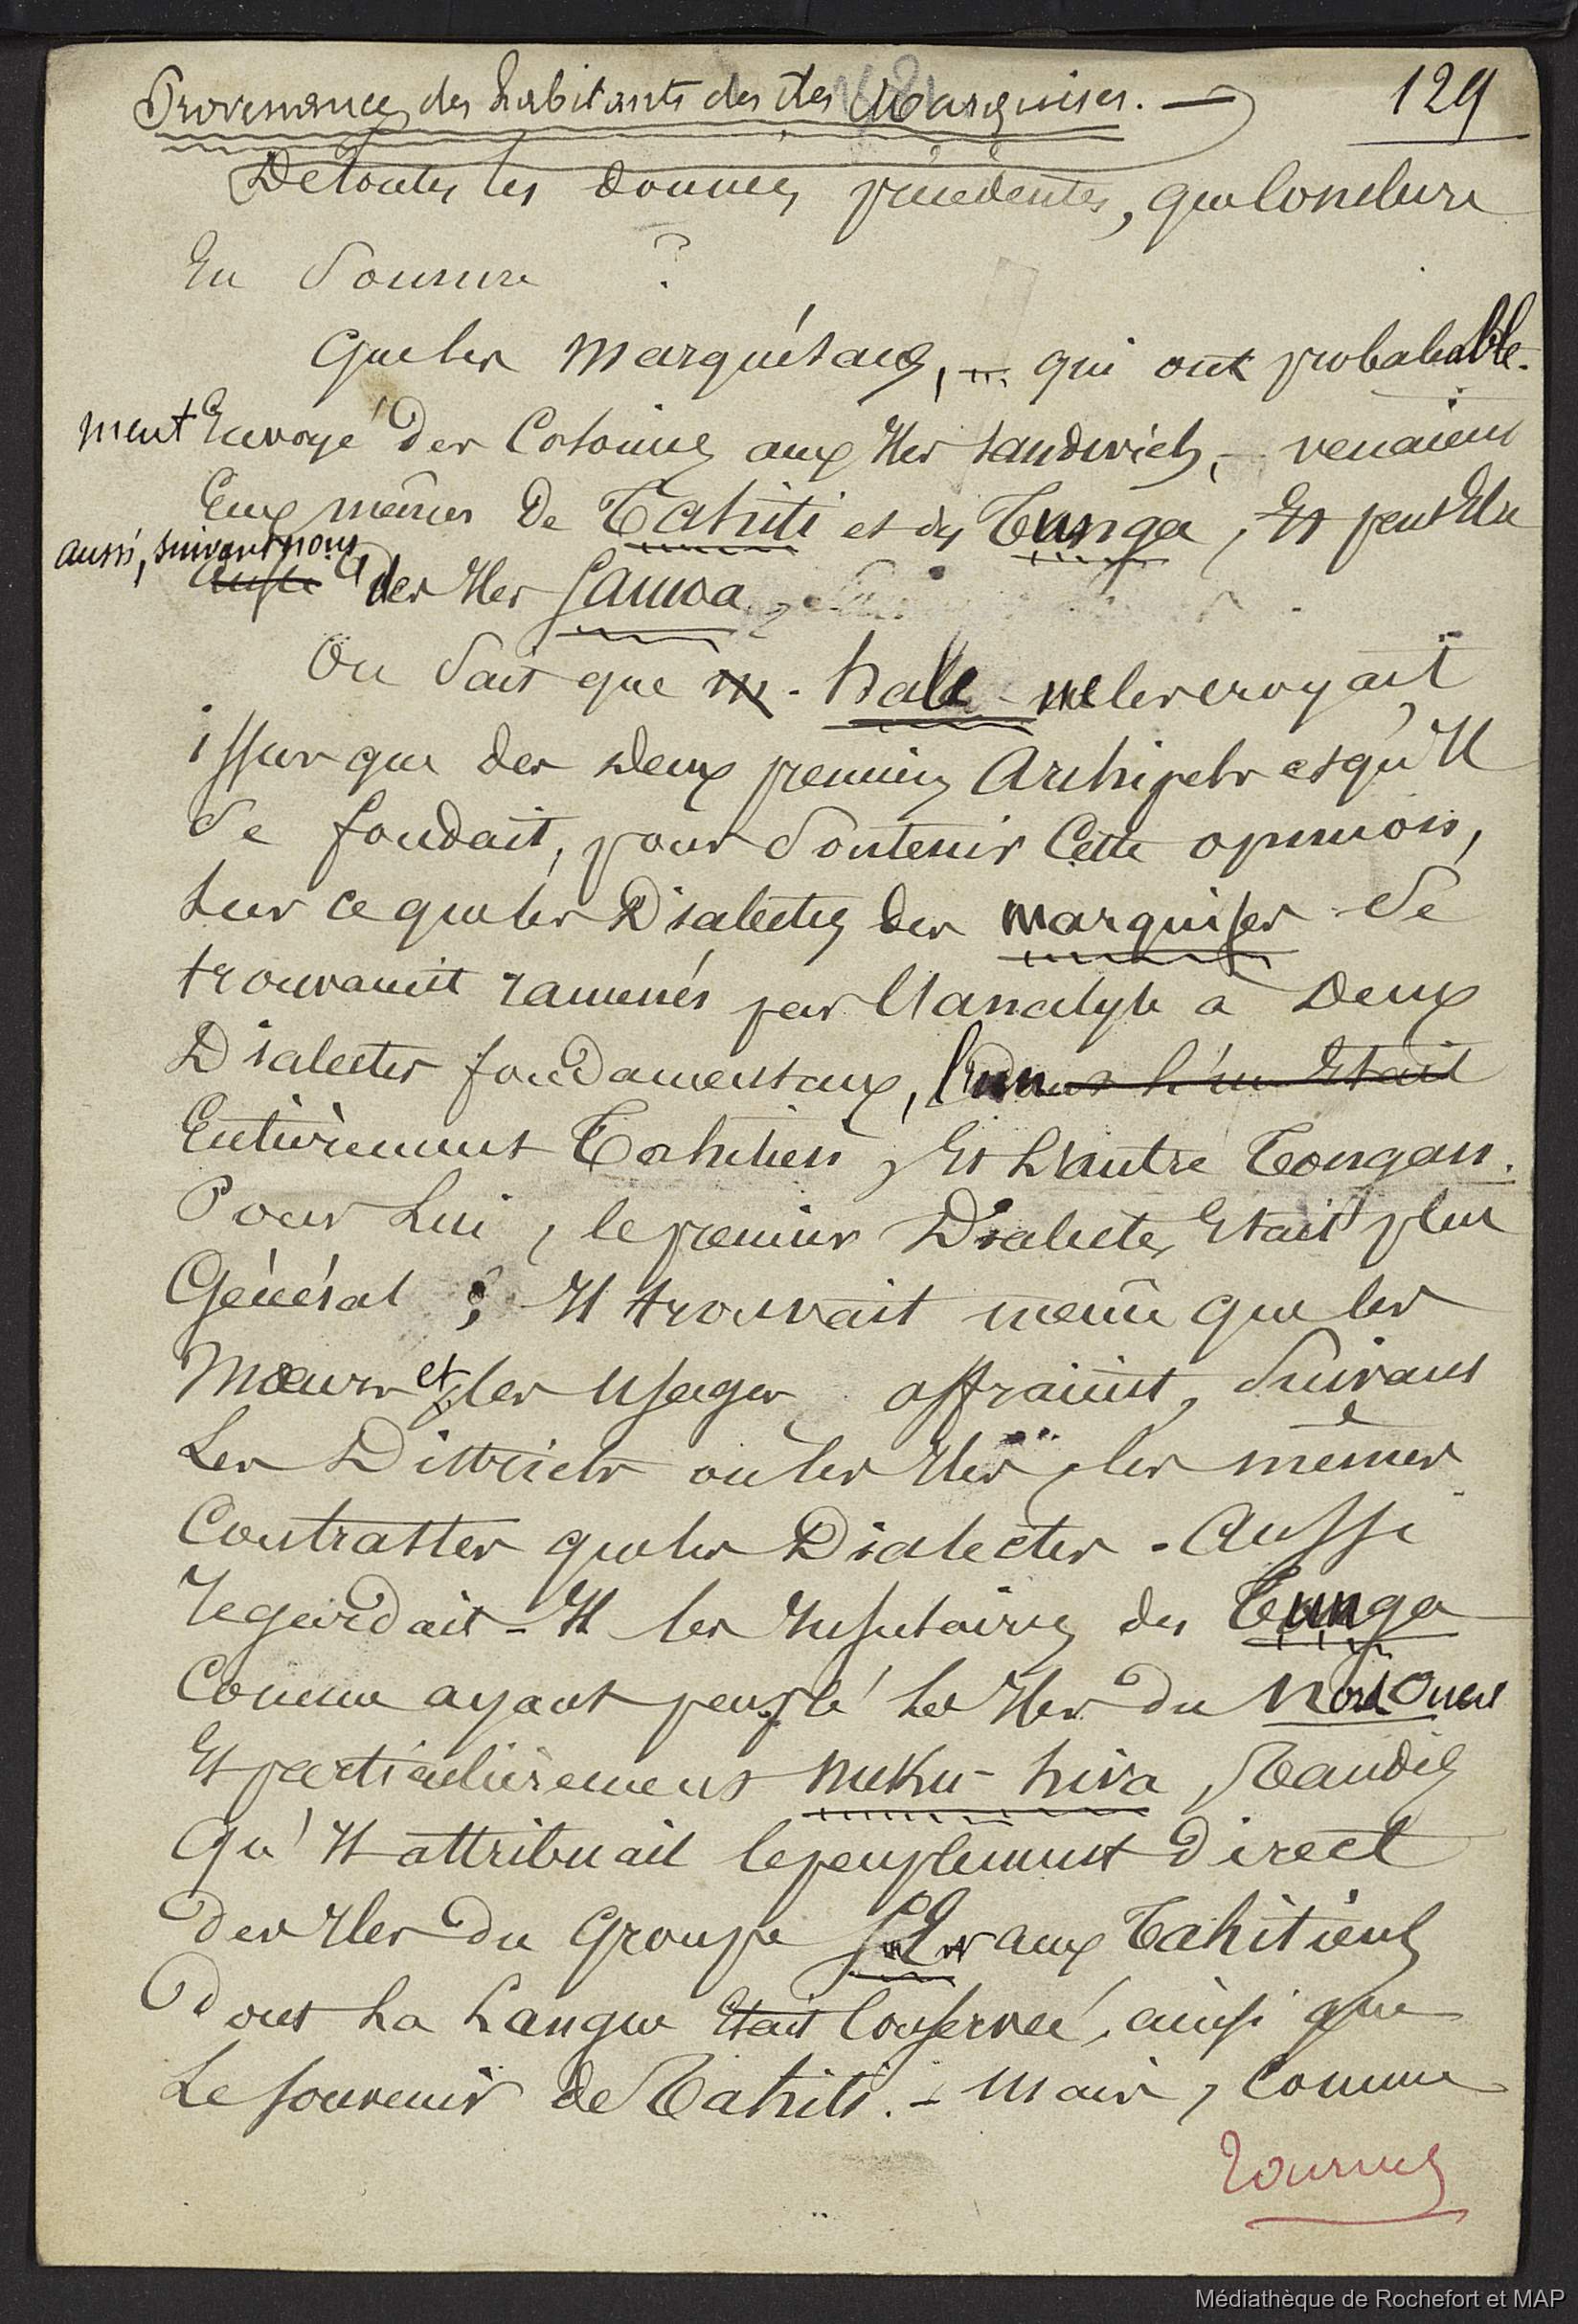 Provenance des habitants des îles Marquises. — 129
De toutes les données précédentes, que conclure
En Somme ?
Que les Marquésans, — qui ont probable-
ment Envoyé des Colonies aux Iles Sandwich, — venaient
Eux mêmes de Tahiti et des Tunga, Et peut Etre
aussi, suivant nous
aussi des Iles Samoa,
On Sait que M. Hale ne les croyait
issus que des deux premiers Archipels et qu'Il
Se fondait, pour Soutenir Cette opinion,
Sur ce que les Dialectes des Marquises Se
trouvaient ramenés par l'analyse à Deux
Dialectes fondamentaux, l'un l'un Etait
Entièrement Tahitien, Et L'autre Tongan.
Pour Lui, le premier Dialecte, Etait plus
Général ; Il trouvait même que les
Mœurs et les Usages offraient, Suivant
Les Districts où les Iles, les mêmes
Contrastes que les Dialectes. Aussi
Regardait-Il les Insulaires des Tunga
Comme ayant peuplé les Iles du Nord Ouest
Et particulièrement Nuku-hiva, Tandis
Qu'Il attribuait le peuplement Direct
Des Iles du Groupe Sud aux Tahitiens
Dont La Langue Etait Conservée, ainsi que
Le Souvenir de Tahiti. — Mais, Comme
Tournez
Médiathèque de Rochefort et MAP